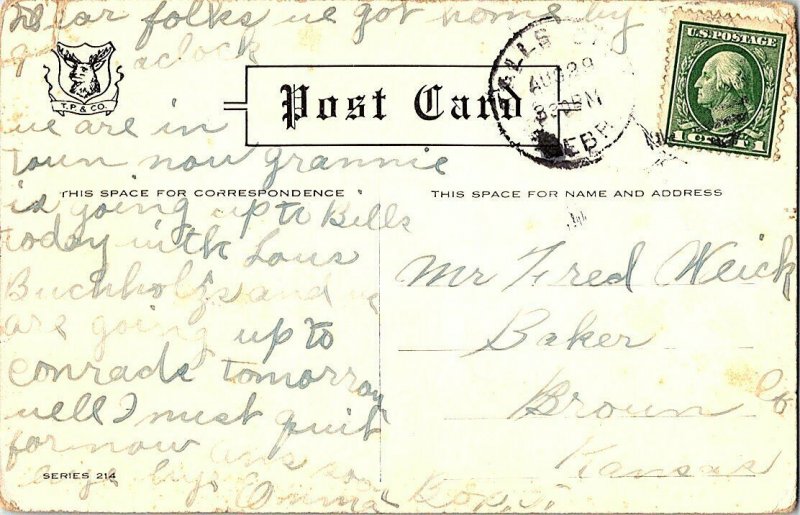 Dear folks we got home by
oclock
we are in
town now grannie
is going up to Bills
today with Lous
Buchholz's and we
are going up to
conrads tomorrow
well I must quit
for now ans soon
bye
T.P. & CO.
Post Card
THIS SPACE FOR CORRESPONDENCE
SERIES 214
U.S. POSTAGE
1 CENT 1
AUG 29
NEBR
THIS SPACE FOR NAME AND ADDRESS
Mr Fred Weick
Baker
Brown Co
Kansas